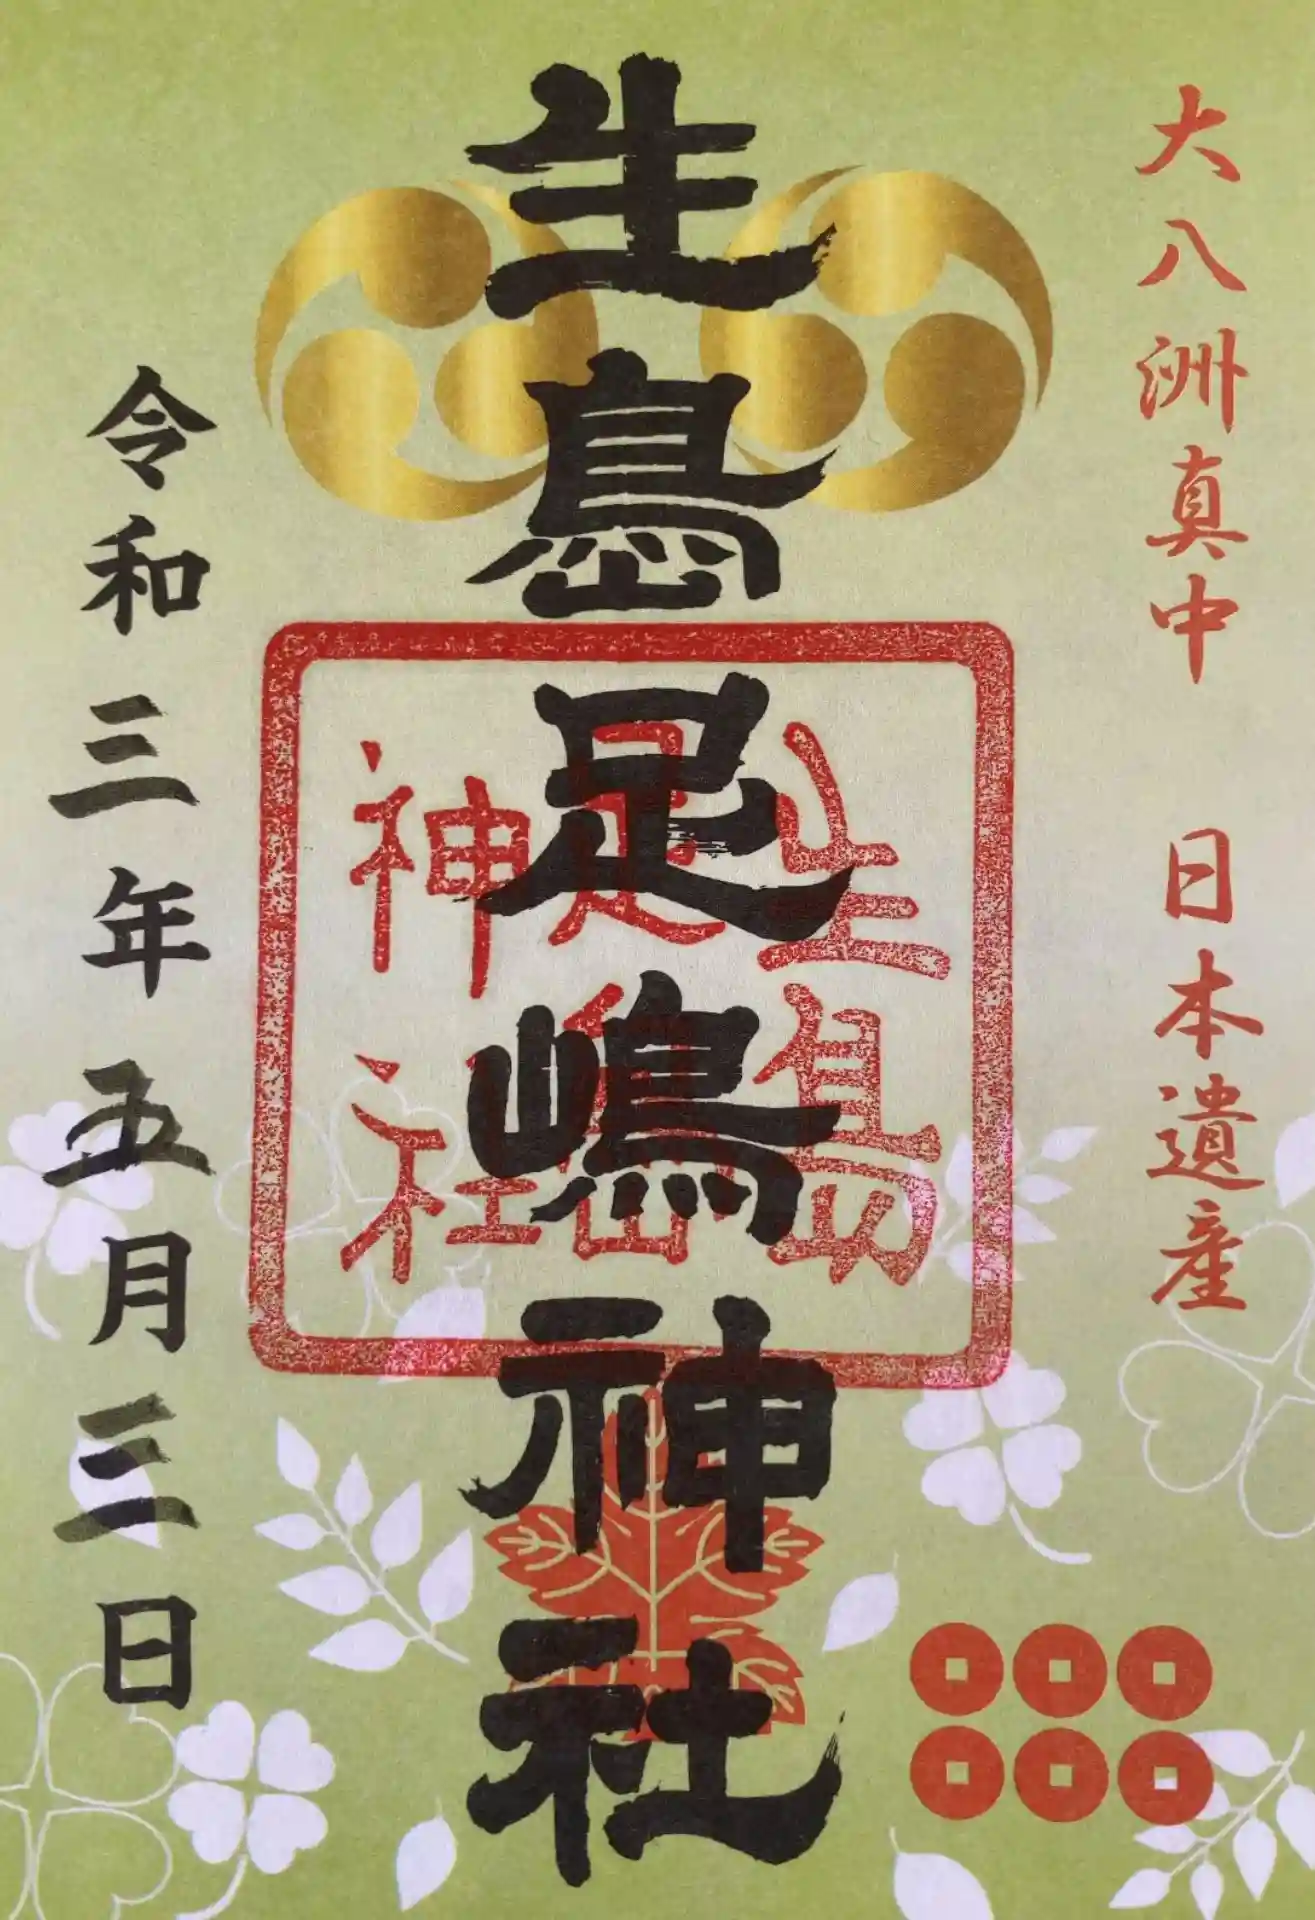 大八洲真中 日本遺産
生島足嶋神社
生島
足島
神社
令和三年五月三日